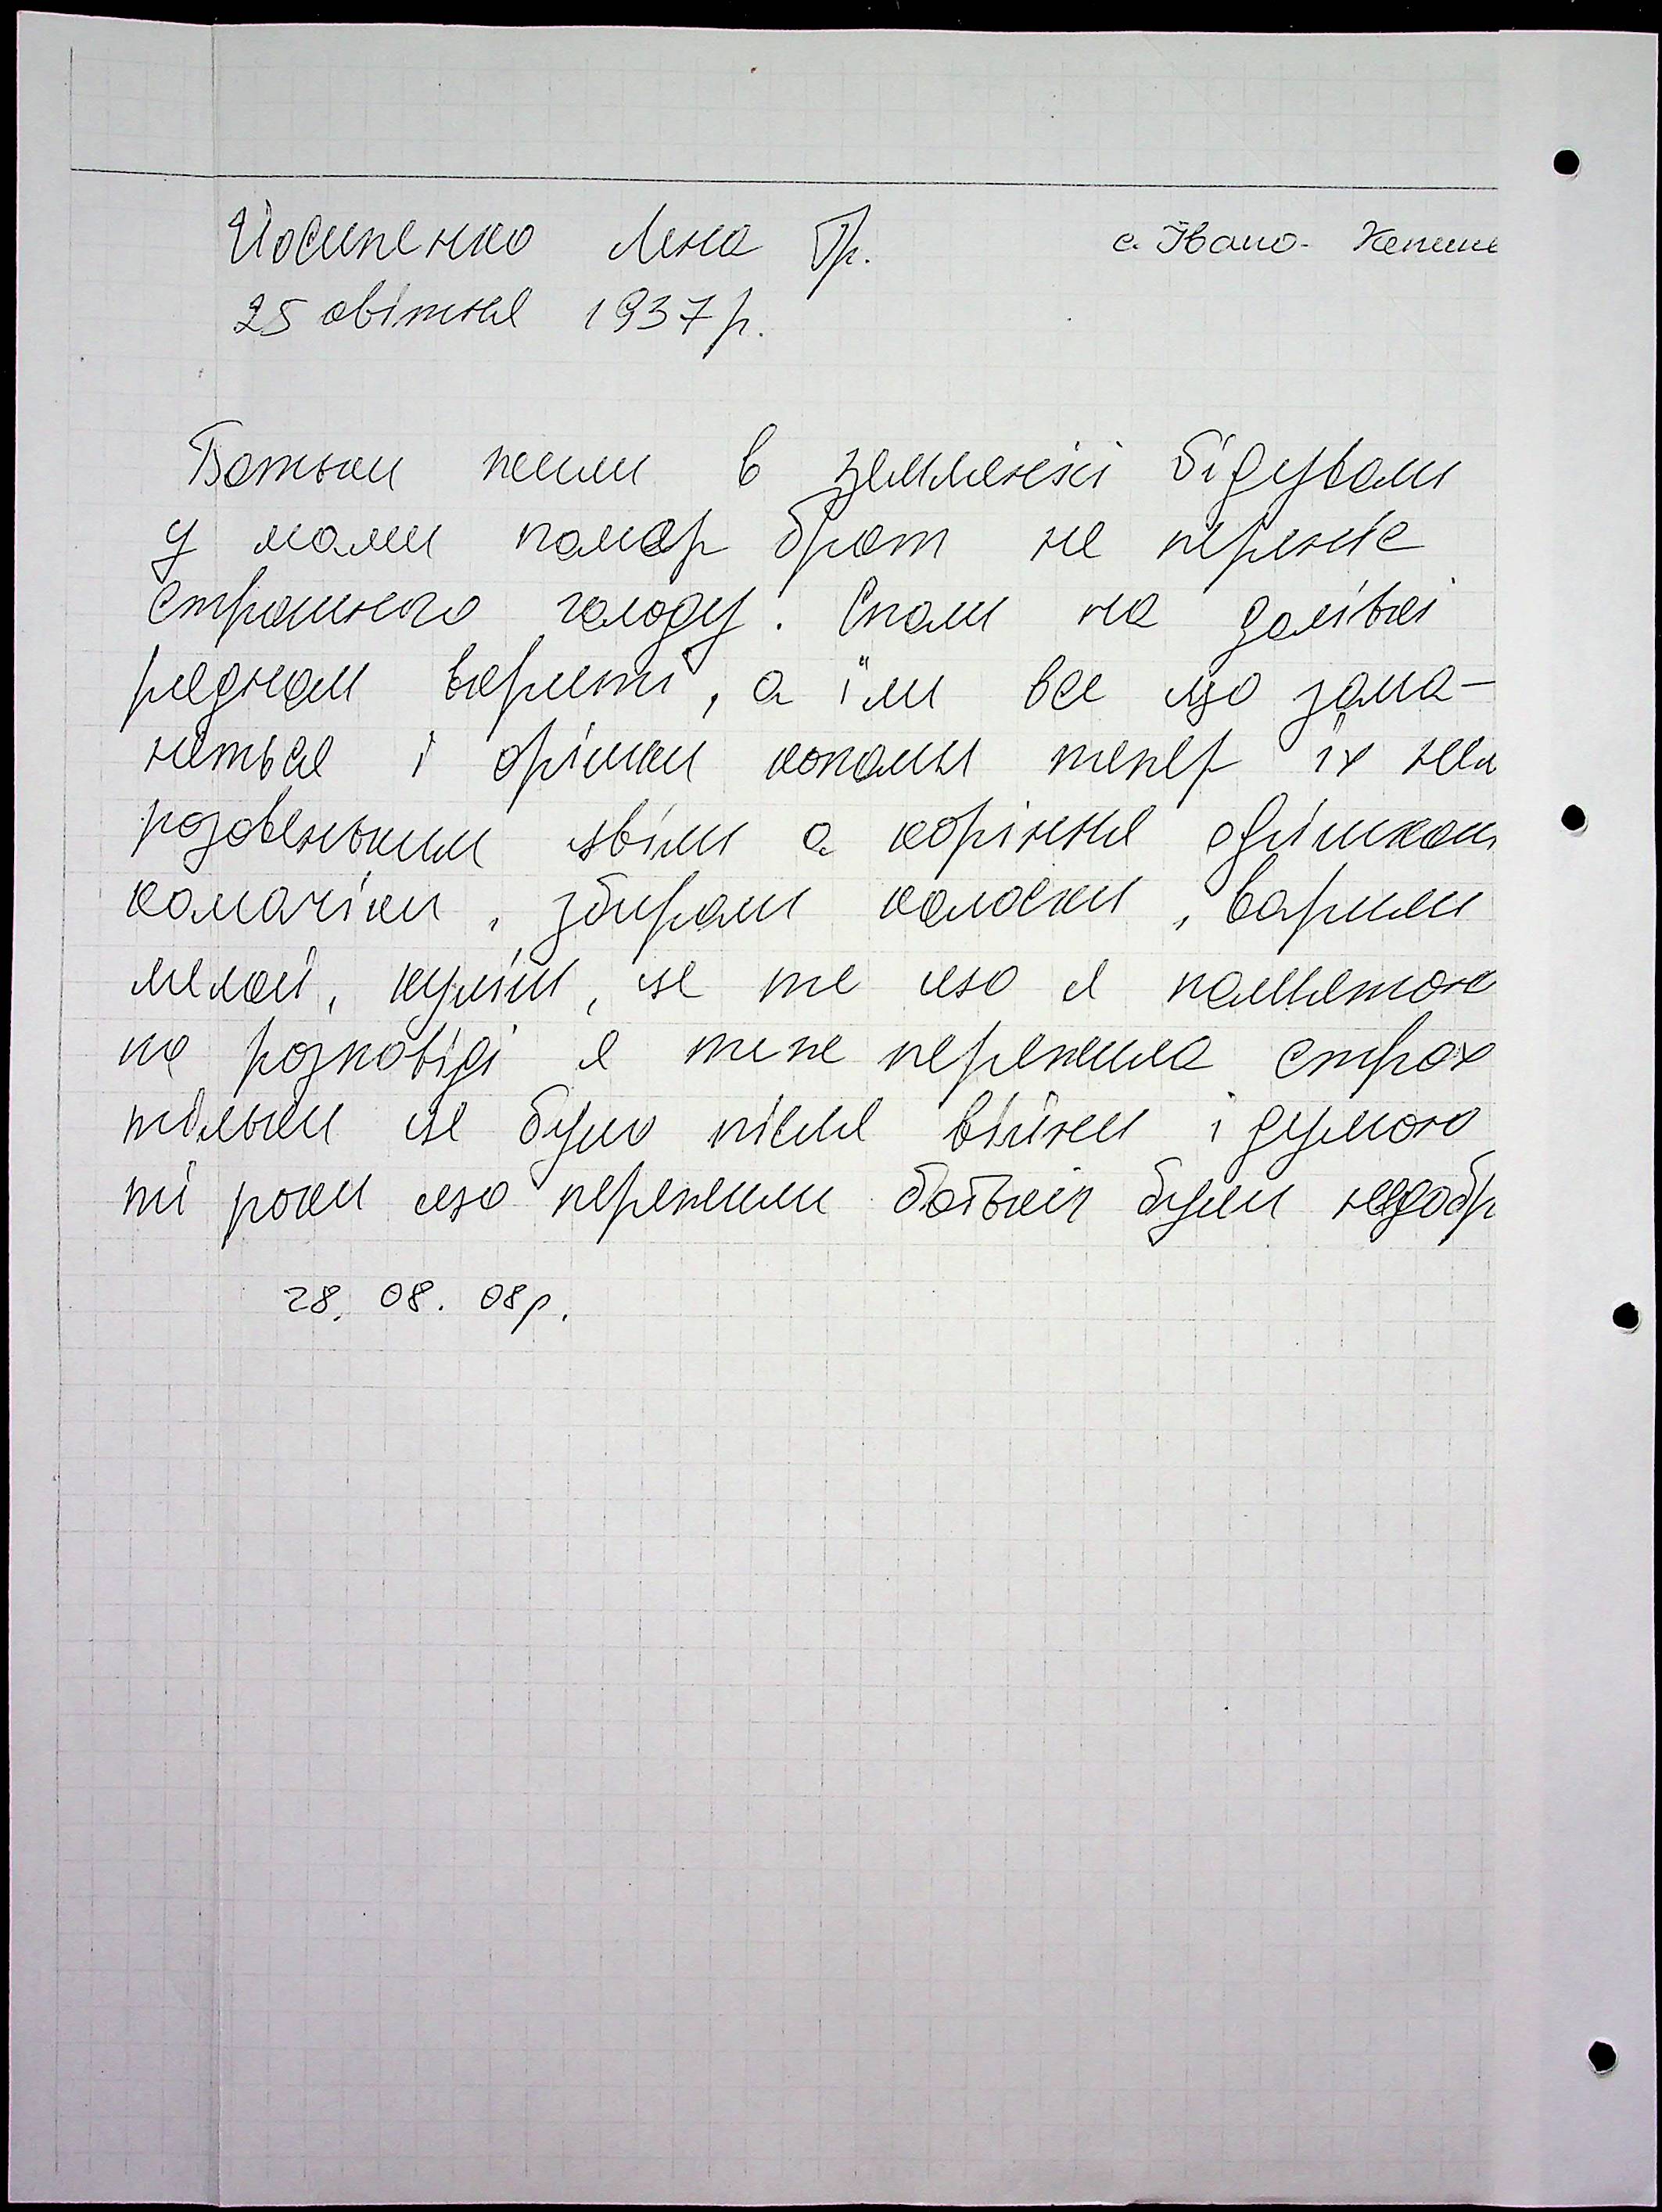 Йосипенко Ліна Гр. с. Івано- Кепине
25 квітня 1937 р.
Батьки жили в землянкі бідували
у мами помер брат не переніс
страшного голоду. Спали на долівкі
рядном вкриті, а їли все що зама-
неться і орішки копали тепер їх нема
розовенькими цвіли а коріння орішками
калачіки, збирали колоски, варили
мелай, куліш, це те що я памятаю
по розповіді я теж пережила страх
тільки це було після війни і думаю
ті роки що пережили батькі були недобр
28. 08. 08р.